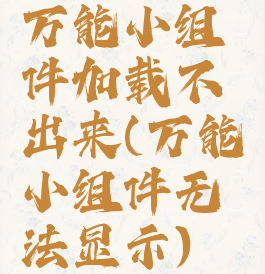 万能小组
件加载不
出来(万能
小组件无
法显示)